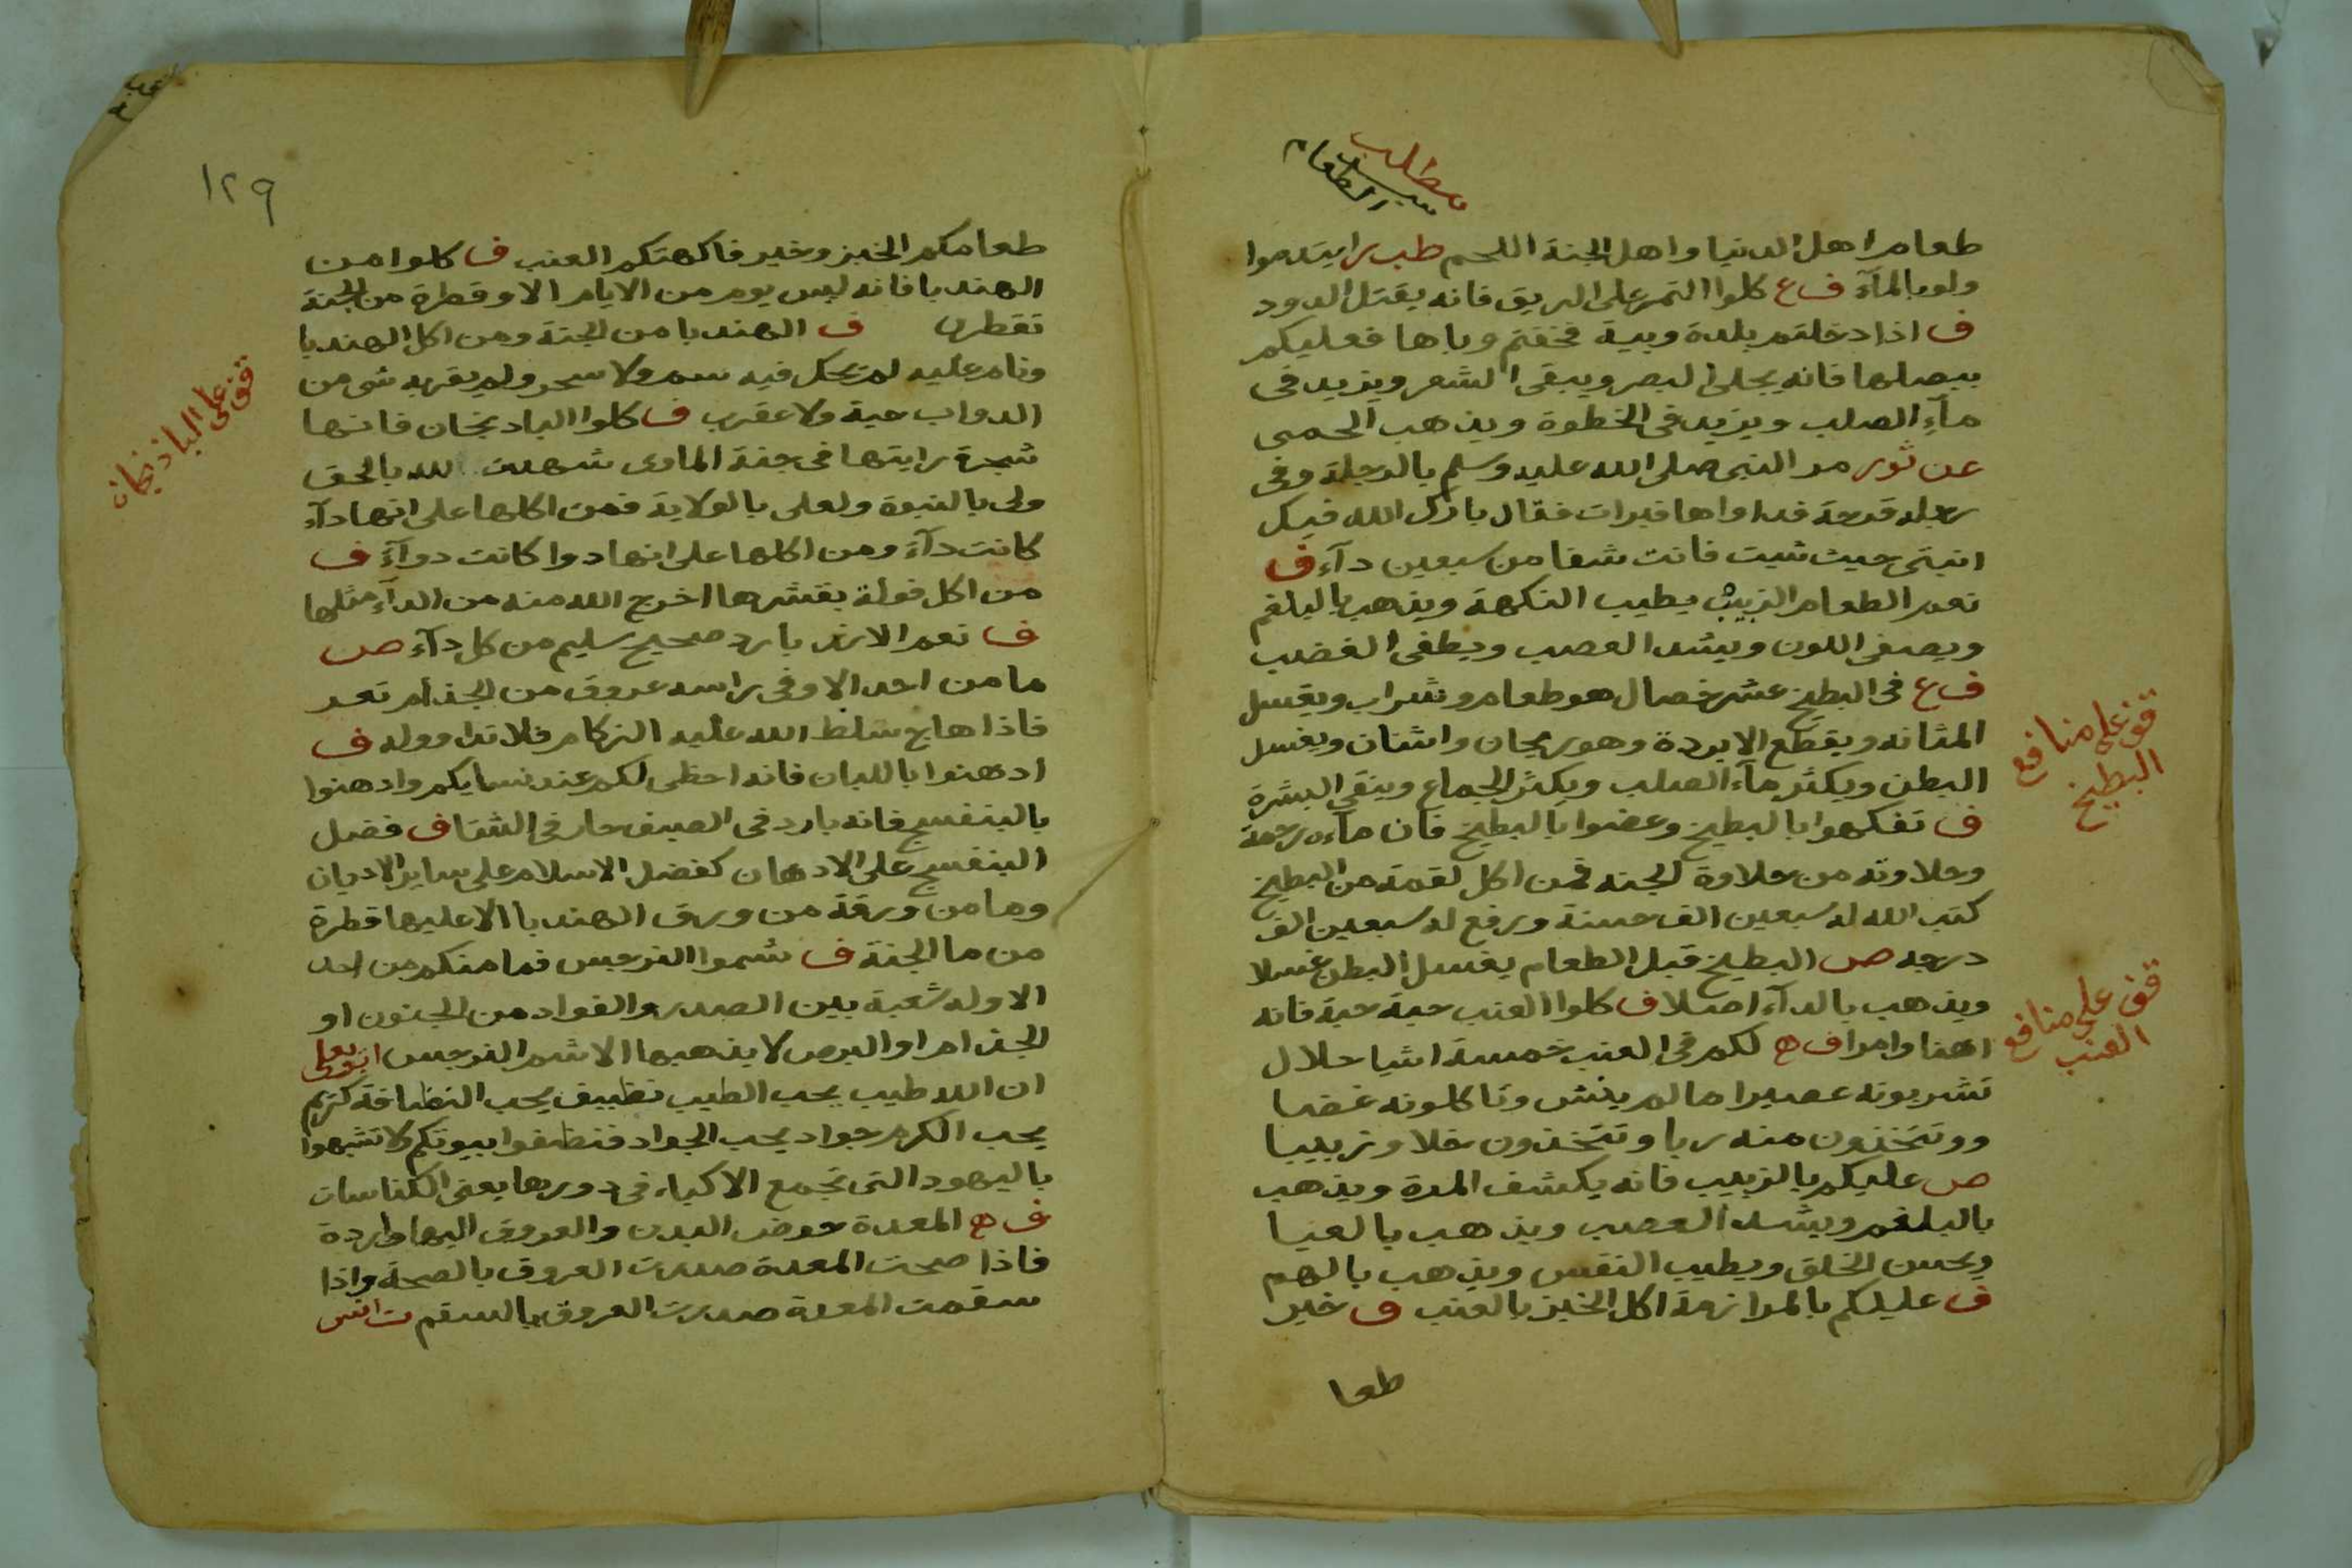 مطلب
سيد
الطعام
طعام اهل الدنيا واهل الجنة اللحم طب ايتدموا
ولو بالمآء ف ع كلوا التمر على الريق فانه يقتل الدود
ف اذا دخلتم بلدة وبية فخفتم وباها فعليكم
ببصلها فانه يجلى البصر ويبقى الشعر ويزيد فى
مآء الصلب ويزيد فى الخطوة ويذهب الحمى
عن ثور مر النبى صلى الله عليه وسلم بالرجلة وفى
رجله قرحة فداواها فبرات فقال بارك الله فيك
انبتى حيث شيت فانت شفا من سبعين دآء ف
نعم الطعام الزبيب يطيب النكهة ويذهب بالبلغم
ويصفى اللون ويشد العصب ويطفى الغضب
ف ع فى البطيخ عشر خصال هو طعام وشراب ويغسل
المثانه ويقطع الابردة وهو ريحان واشنان ويغسل
البطن ويكثر مآء الصلب ويكثر الجماع وينقى البشرة
ف تفكهوا بالبطيخ وعضوا بالبطيخ فان مآءه رحمة
وحلاوته من حلاوة الجنه فمن اكل لقمة من البطيخ
كتب الله له سبعين الف حسنة ورفع له سبعين الف
درجه ص البطيخ قبل الطعام يغسل البطن غسلا
ويذهب بالدآء اصلا ف كلوا العنب حبة حبة فانه
اهنا وامرا ف ه لكم فى العنب خمسة اشيا حلال
تشربونه عصيرا ما لم ينش وتاكلونه غضا
ووتتخذون منه ربا وتتخذون خلا وزبيبا
ص عليكم بالزبيب فانه يكشف المرة ويذهب
بالبلغم ويشد العصب ويذهب بالعيا
ويحسن الخلق ويطيب النفس ويذهب بالهم
ف عليكم بالمرازمة اكل الخبز بالعنب ف خير
طعا
قف على منافع
البطيخ
قف على منافع
العنب
١٢٩
طعامكم الخبز وخير فاكهتكم العنب ف كلوا من
الهندبا فانه ليس يوم من الايام الا وقطرة من الجنة
تقطر ف الهندبا من الجنة ومن اكل الهندبا
ونام عليه لم يحل فيه سم ولا سحر ولم يقربه شى من
الدواب حية ولا عقرب ف كلوا البادنجان فانها
شجرة رايتها فى جنة الماوى شهدت لله بالحق
ولى بالنبوة ولعلى بالولاية فمن اكلها على انها دآء
كانت دآء ومن اكلها على انها دوا كانت دوآء ف
من اكل فولة بقشرها اخرج الله منه من الدآء مثلها
ف نعم الارز بارد صحيح سليم من كل دآء ص
ما من احد الا وفى راسه عروق من الجذام تعر
فاذا هاج سلط الله عليه الزكام فلا تداووله ف
ادهنوا باللبان فانه احظى لكم عند نسايكم وادهنوا
بالبنفسج فانه بارد فى الصيف حار فى الشتا ف فضل
البنفسج على الادهان كفضل الاسلام على ساير الاديان
وما من ورقة من ورق الهندبا الا عليها قطرة
من ما الجنة ف شموا النرجس فما منكم من احد
الا وله شعبة بين الصدر والفواد من الجنون او
الجذام او البرص لا يذهبها الا شم النرجس ابو يعلى
ان الله طيب يحب الطيب نظييف يحب النظافة كريم
يحب الكرم جواد يحب الجواد فنظفوا بيوتكم ولا تشبهوا
باليهود التى تجمع الاكباء فى دورها يعنى الكناسات
ف ه المعدة حوض البدن والعروق اليها واردة
فاذا صحت المعدة صدرت العروق بالصحة واذا
سقمت المعدة صدرت العروق بالسقم ت انس
قف على الباذنجان